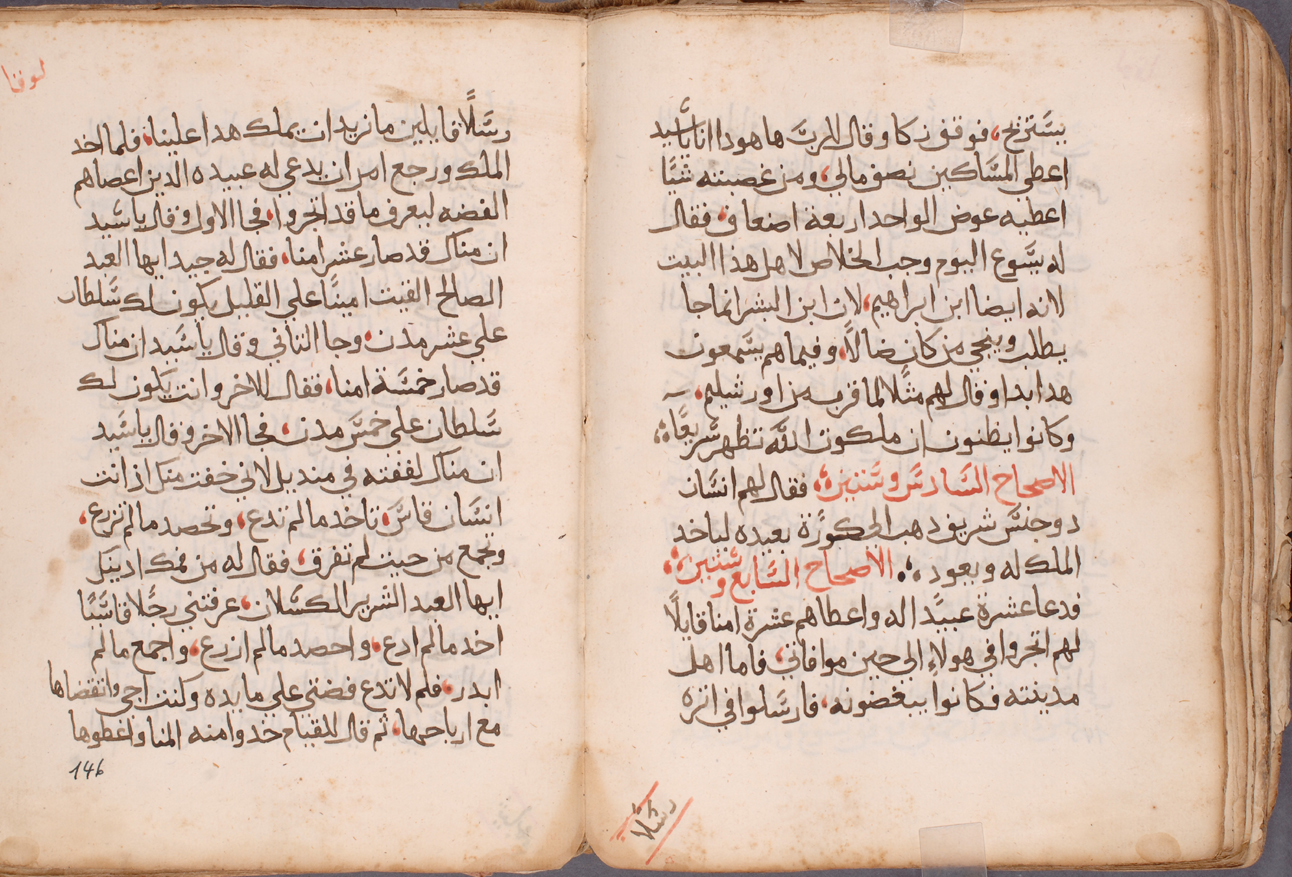 يستريح، فوقف زكا وقال للرب ها هودا انا يا سيد
اعطي المساكين نصف مالي، ومن غصبته شيًا
اعطيه عوض الواحد اربعة اضعاف، فقال
له يسوع اليوم وجب الخلاص لاهل هذا البيت
لانه ايضا ابن ابراهيم، لان ابن البشر انما جا
يطلب وينجي من كان ضالًا، وفيما هم يسمعون
هدا بدا وقال لهم مثلًا لما قرب من اورشيلم،
وكانوا يظنون ان ملكوت الله تظهر سريعًا،
الاصحاح السادس وستين، فقال لهم انسان
دو جنس شريف دهب الى كورة بعيده لياخد
الملك له ويعود، الاصحاح السابع وستين،
فدعا عشرة عبيدًا له واعطاهم عشرة امنا قايلًا
لهم اتجروا في هولاء الى حين موافاتي، فاما اهل
مدينته فكانوا يبغضونه، فارسلوا في اثره
رسلًا
لوقا
رسلًا قايلين ما نريد ان يملك هدا علينا، فلما اخد
الملك ورجع امر ان يدعى له عبيده الدين اعطاهم
الفضه ليعرف ما قد اتجروا، فجا الاول وقال يا سيد
ان مناك قد صار عشر امنا، فقال له جيد ايها العبد
الصالح الفيت امينًا على القليل يكون لك سلطان
على عشر مدن، وجا الثاني وقال يا سيد ان مناك
قد صار خمسة امنا، فقال للاخر وانت يكون لك
سلطان على خمس مدن، فجا الاخر وقال يا سيد
ان مناك لففته في منديل لاني خفت منك اذ انت
انسان قاس، تاخد ما لم تدع، وتحصد ما لم تزرع،
وتجمع من حيت لم تفرق، فقال له من فمك ادينك
ايها العبد الشرير الكسلان، عرفتني رجلًا قاسيًا
اخد ما لم ادع، واحصد ما لم ازرع، واجمع ما لم
ابدر، فلم لا تدع فضتي على مايده وكنت اجي واتقضاها
مع ارباحها، ثم قال للقيام خدوا منه المنا واعطوها
146